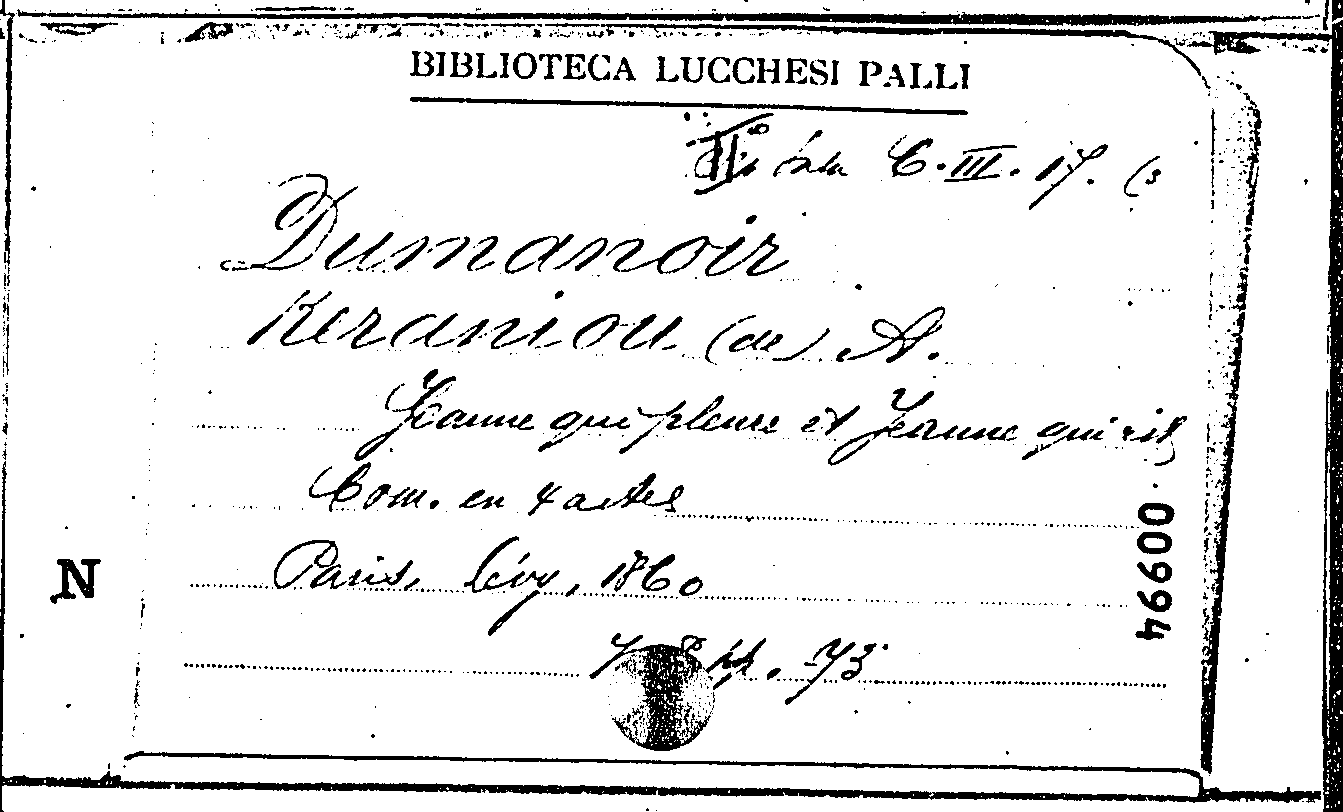 BIBLIOTECA LUCCHESI PALLI
IIª sala C. III. 17. (3
Dumanoir
Keraniou (de) A.
Jeanne qui pleure et Jeanne qui rit
Com. en 4 actes
Paris, Lévy, 1860
N
00994
pp. 73